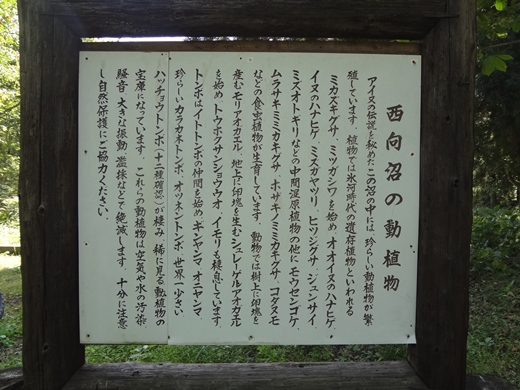 西向沼の動植物
アイヌの伝説を秘めたこの沼の中には、珍らしい動植物が繁
殖しています。植物では氷河時代の遺存植物といわれる
ミカズキグサ、ミツガシワを始め、オオイヌのハナヒゲ、
イヌのハナヒゲ、ミズガヤツリ、ヒツジグサ、ジュンサイ、
ミズオトギリなどの中間湿原植物の他に、モウセンゴケ、
ムラサキミミカキグサ、ホザキノミミカキグサ、コタヌモ
などの食虫植物が生育しています。動物では樹上に卵塊を
産むモリアオガエル、地上に卵塊を生むシュレーゲルアオガエル
を始め、トウホクサンショウウオ、イモリも棲息しています。
トンボはイトトンボの仲間を始め、キンヤンマ、オニヤンマ、
珍らしいカラカネトンボ、オツネントンボ、世界一少さい
ハッチョウトンボ(十二種確認)が棲み、稀に見る動植物の
宝庫になっています。これらの動植物は空気や水の汚染、
騒音、大きな振動、濫採などで絶滅します。十分に注意
し自然保護にご協力ください。